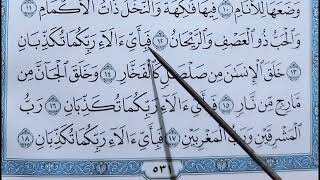 وَضَعَهَا لِلْأَنَامِ ١٠ فِيهَا فَاكِهَةٌ وَالنَّخْلُ ذَاتُ الْأَكْمَامِ ١١
وَالْحَبُّ ذُو الْعَصْفِ وَالرَّيْحَانُ ١٢ فَبِأَيِّ ءَالَآءِ رَبِّكُمَا تُكَذِّبَانِ
١٣ خَلَقَ الْإِنسَٰنَ مِن صَلْصَٰلٍ كَالْفَخَّارِ ١٤ وَخَلَقَ الْجَآنَّ مِن
مَّارِجٍ مِّن نَّارٍ ١٥ فَبِأَيِّ ءَالَآءِ رَبِّكُمَا تُكَذِّبَانِ ١٦ رَبُّ
الْمَشْرِقَيْنِ وَرَبُّ الْمَغْرِبَيْنِ ١٧ فَبِأَيِّ ءَالَآءِ رَبِّكُمَا تُكَذِّبَانِ ١٨